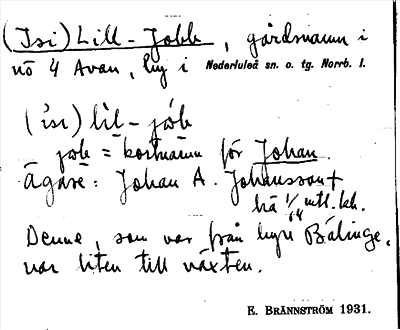 (Isi) Lill-Jobb, gårdsnamn i
nö 4 Avan, by i Nederluleå sn. o. tg. Norrb. l.
(ìsi) lìl-jób
job = kortnamn för Johan.
Ägare: Johan A. Johansson †
på 1/64 mtl. kh.
Denne, som var från byn Bälinge,
var liten till växten.
E. BRÄNNSTRÖM 1931.